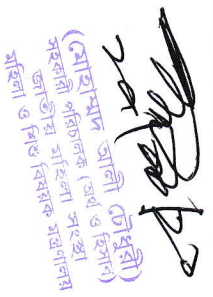 (মোহাম্মদ আলী চৌধুরী)
সহকারী পরিচালক (অর্থ ও হিসাব)
জাতীয় মহিলা সংস্থা
মহিলা ও শিশু বিষয়ক মন্ত্রণালয়